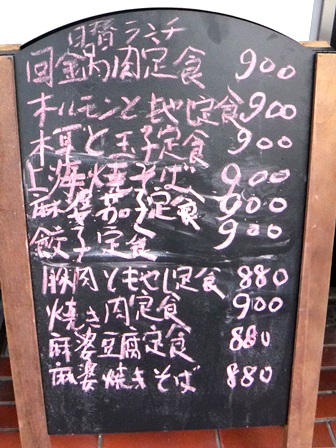 日曆ランチ
回鍋肉定食 900
ホルモンともやし定食 900
木耳と玉子定食 900
上海焼そば 900
麻婆茄子定食 900
餃子定食 900
豚肉ともやし定食 880
焼き肉定食 900
麻婆豆腐定食 880
麻婆焼きそば 880